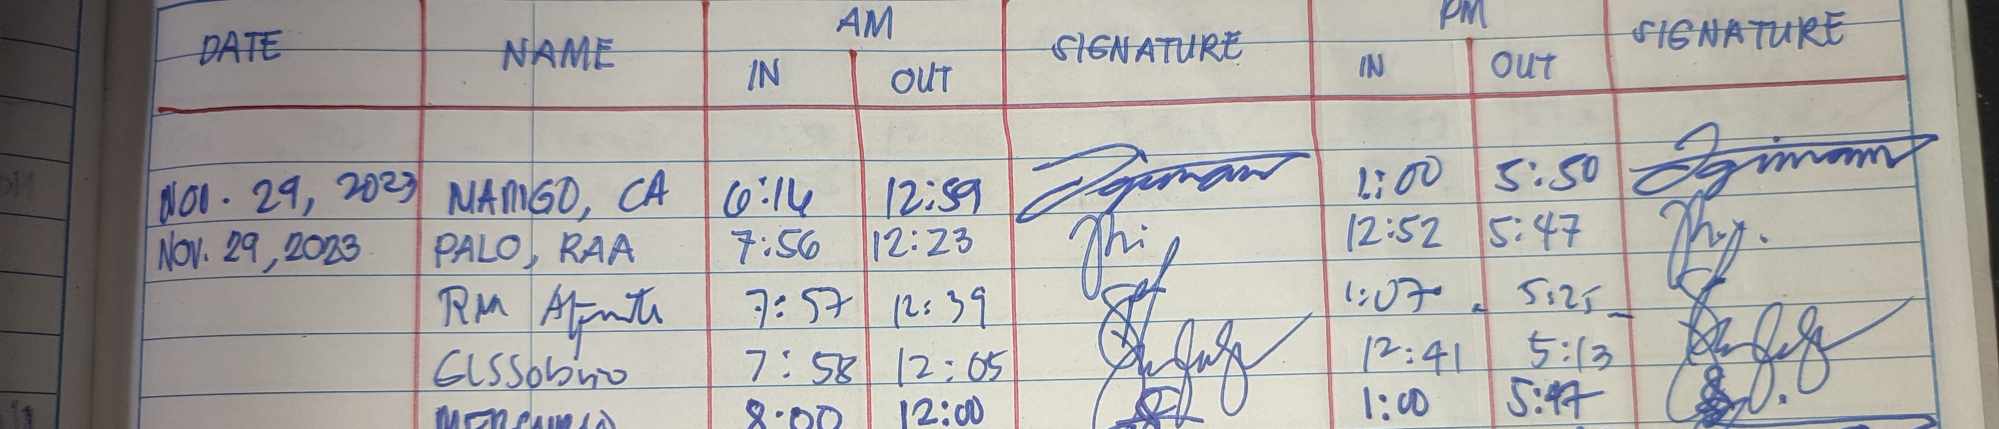 DATE NAME AM SIGNATURE PM SIGNATURE
IN OUT IN OUT
NOV. 29, 2023 NAMGO, CA 6:14 12:59 1:00 5:50
NOV. 29, 2023 PALO, RAA 7:56 12:23 12:52 5:47
RM 7:57 12:39 1:07 5:25
GLSSobrio 7:58 12:05 12:41 5:13
8:00 12:00 1:00 5:47